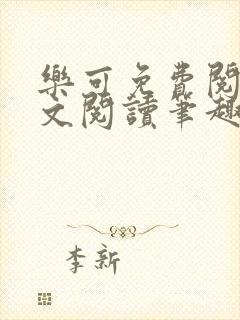 樂可免費閱
文閱讀筆趣
李新